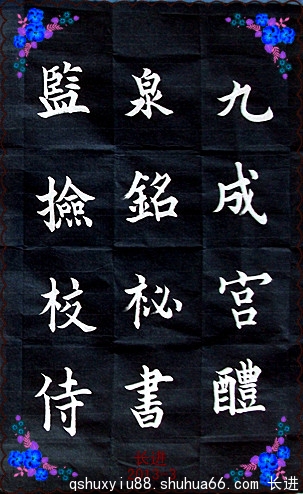 九成宮醴
泉銘祕書
監撿校侍
长进
qshuxyiu88.shuhua66.com 长进